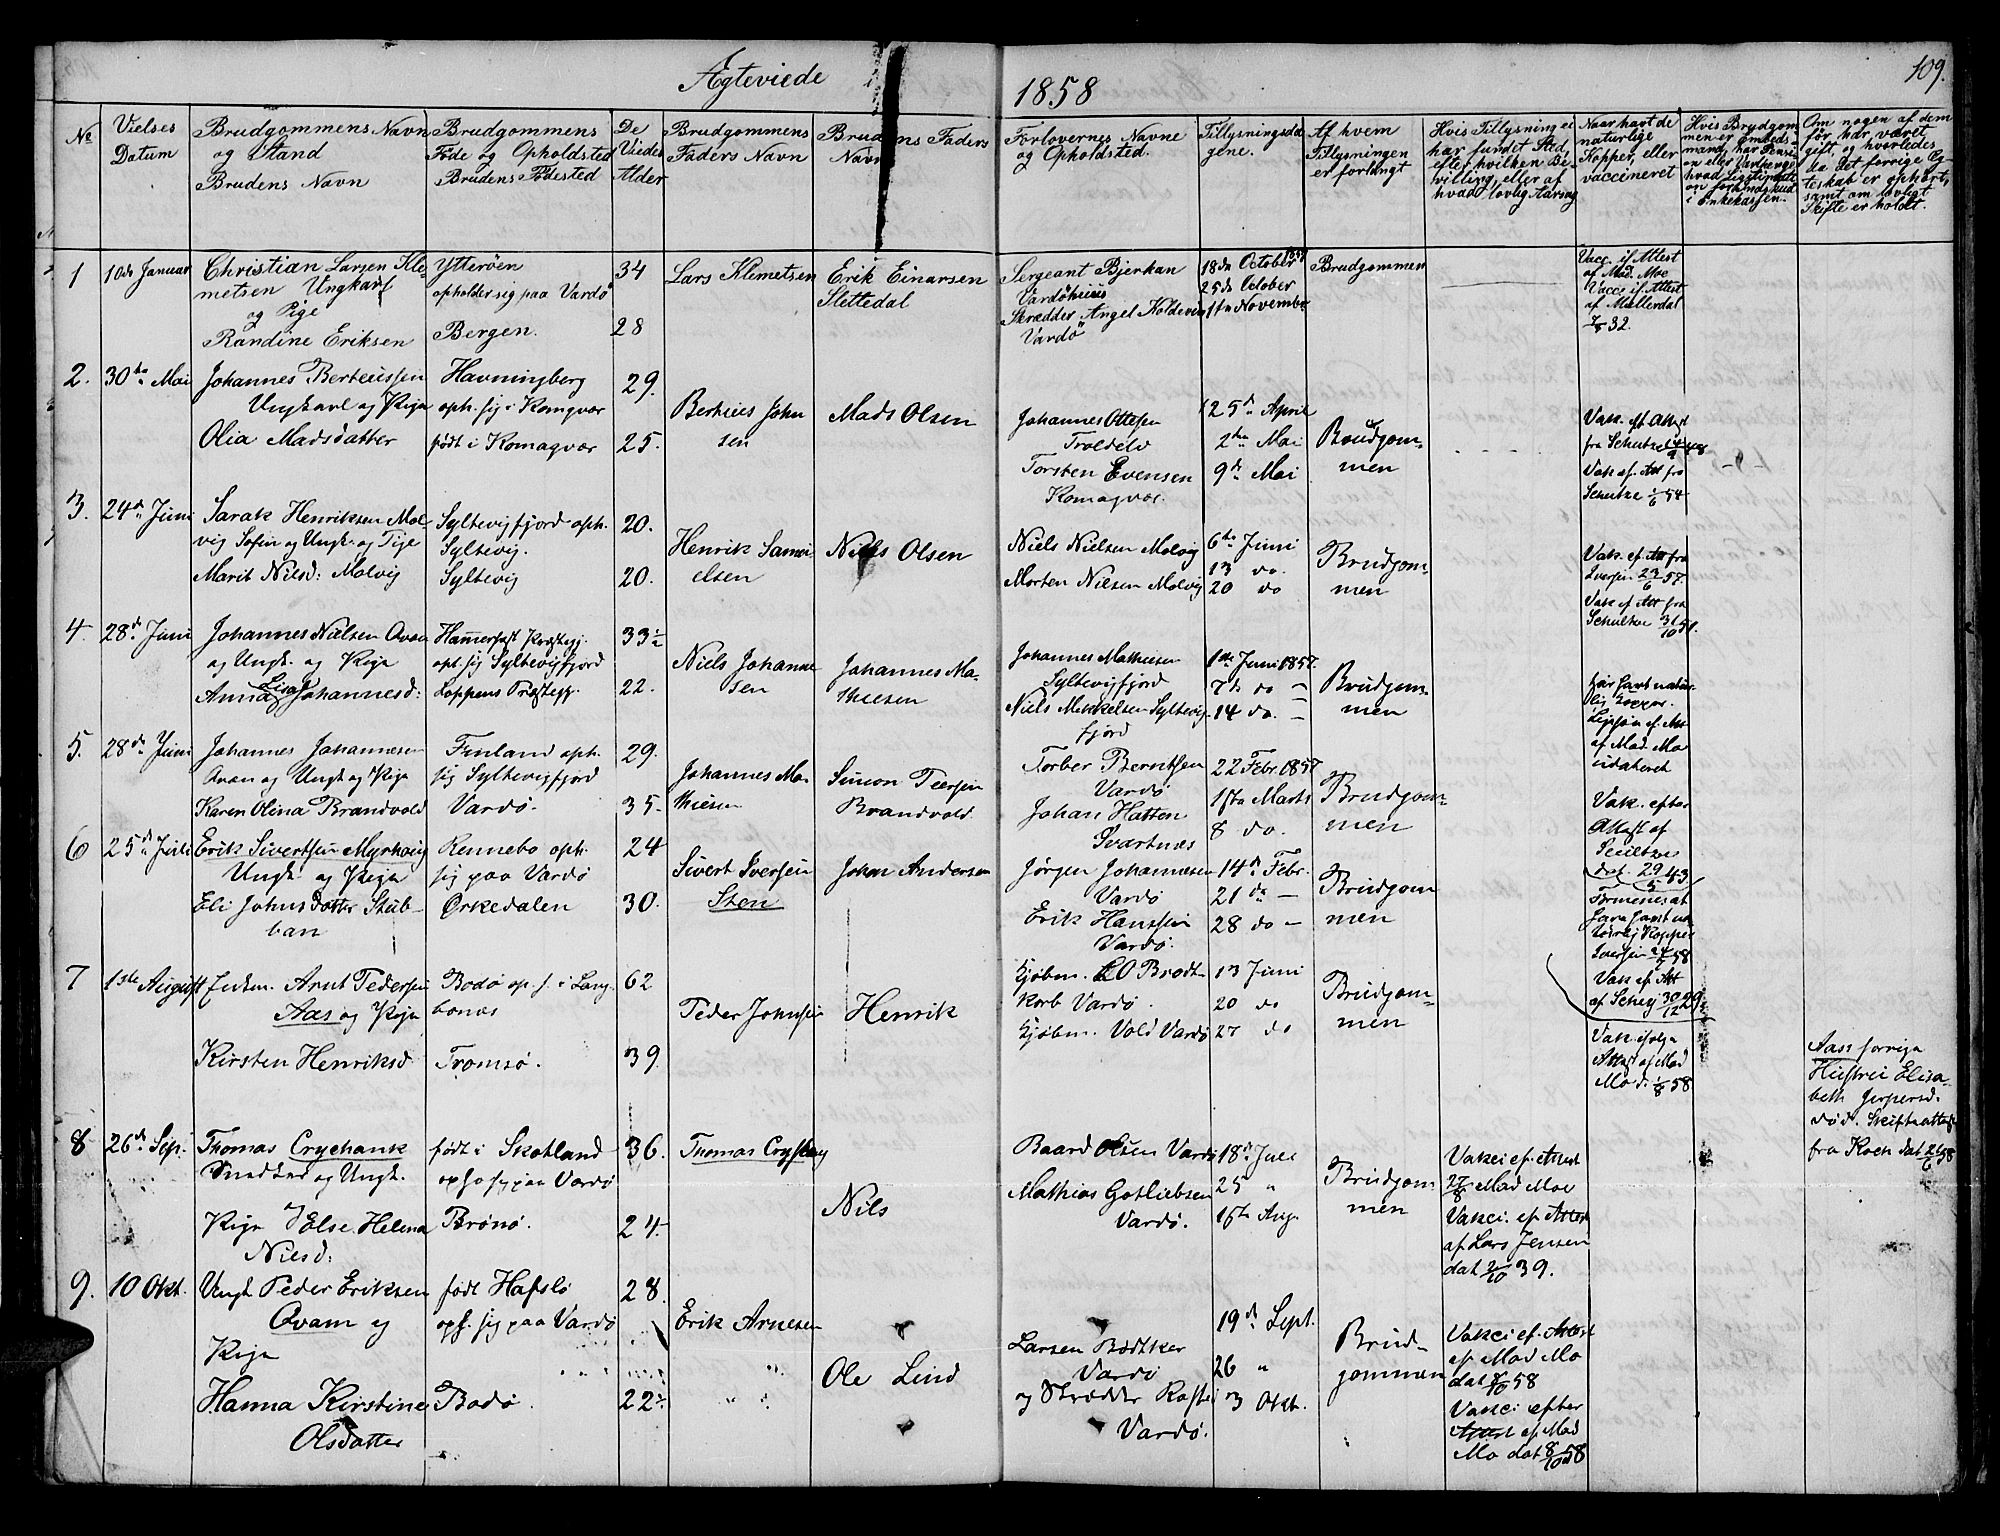 Ægteviede
1858
109.
No
Vielses
Datum
Brudgommens Navn
og Stand
Brudens Navn
Brudgommens
Føde og Opholdsted
Brudens Fødested
De
Viedes
Alder
Brudgommens
Faders Navn
Brudens Faders
Navn
Forlovernes Navne
og Opholdsted.
Tillysningsda-
gene.
Af hvem
Tillysningen
er forlangt
Hvis Tillysning ei
har fundet Sted,
efter hvilken Be-
villing, eller af
hvad lovlig Aarsag
Naar havt de
naturlige
Kopper, eller
vaccineret
Hvis Brudgom-
men er Embeds-
mand, har Pensi-
on eller Vartpenge
hvad Legitimati-
on for Indskud
i Enkekassen.
Om nogen af dem
før har været
gift, og hvorledes
da det forrige Æg-
teskab er ophørt,
samt om lovligt
Skifte er holdt.
1
10de Januar
Christian Larsen Kle-
metsen Ungkarl
og Pige
Randine Eriksen
Ytterøen
opholder sig paa Vardø
Bergen.
34
28
Lars Klemetsen
Erik Einarsen
Slettedal
Sergeant Bjerkan
Vardöhuus
Skrædder Angel Koldevin
Vardö
18de October 1857
25de October
1ste November
Brudgommen
Vacc. if. Attest
af Mad. Moe
Vacc. if. Attest
af Møllerdal
7/8 32.
2.
30te Mai
Johannes Berteussen
Ungkarl og Pige
Olia Madsdatter
Havningberg
oph. sig i Komagvær
født i Komagvær
29.
25.
Berteus John
sen
Mads Olsen
Johannes Ottesen
Troldelv
Torsten Evensen
Komagvær.
25de April
2den Mai
9de Mai
Brudgom-
men
Vak. ef. Attest
fra Schultze 14/9 48
Vak. ef. Att fra
Schultze 1/6 54
3.
24de Juni
Sarak Henriksen Mol-
vig Søfin og Ungk. og Pige
Marit Nilsd: Molvig
Syltevigfjord oph.
Syltevig.
Syltevig
20.
20.
Henrik Samu
elsen
Niels Olsen
Niels Nielsen Molvig
Morten Nielsen Molvig
6te Juni
13 do.
20 do
Brudgom-
men
Vak. ef. Att fra
Iversen 23/6 57.
Vak ef Att fra
Schultze 31/10 51.
4.
28de Juni
Johannes Nielsen Qvæn
og Ungk. og Pige
Anna Lisa Johannesd:
Hamerfest Præstegj.
oph. sig Syltevigfjord
Loppens Præstegj.
33½
22.
Niels Johanne
sen
Johannes Ma-
thiesen
Johannes Mathiesen
Syltevigfjord
Niels Mikkelsen Syltevig-
fjord
1ste Juni 1857.
7de do –
14 do. –
Brudgom-
men
har havt natur-
lig Kopper.
af Mad. Mo
udateret
5.
28de Juni
Johannes Johannesen
Qvæn og Ungk og Pige
Karen Olina Brandvold
Finland oph.
sig Syltevigfjord
Vardø.
29.
35.
Johannes Ma-
thiesen
Simon Peersen
Brandvold
Torber Berntsen
Vardø
Johan Hatten
Svartnæs
22 Febr. 1857
1ste Marts
8 do.
Brudgom-
men
Vak. efter
Attest af
Schultze
dat. 29/5 43
6
25de Juli
Erik Sivertsen Myrhoug
Ungk. og Pige
Eli Johnsdatter Stub-
ban
Rennebo oph.
sig paa Vardø
Ørkedalen
24
30.
Sivert Iversen
Sten
John Andersen
Jørgen Johannesen
Vardø
Erik Hanssen
Vardø.
14de Febr.
21 do –
28 do –
Brudgom-
men
Formenes at
have havt na-
turlig Kopper
Iversen 24/7 58
7
1ste August
Enkem. Arnt Pedersen
Aas og Pige
Kirsten Henriksd
Bodø op. s. i Lang-
bonæs
Tromsø.
62
39.
Peder Johnsen
Henrik
Kjøbm. CO Brodt-
korb Vardø.
Kjøbm. Vold Vardø
13 Juni
20 do
27 do
Brudgom-
men
Vak ef Att
af Schey 30/12 29.
Vak. ifølge
Attest af Mad
Mo d. 1/8 58
Aass forrige
Hustrue Elisa-
beth Jespersd.
død. Skifteattest
fra Koch dat 26/6 58
8
26de Sep.
Thomas Crychank
Smedsd og Ungk.
Pige Else Helena
Nilsd:
født i Skotland
oph. sig paa Vardø
Brønø.
36.
24.
Thomas Cryshang
Nils
Baard Olsen Vardø
Mathias Gotliebsen
Vardø.
18de Juli
25 "
1ste Aug.
Brudgom
men
Vakci ef. Attest
27/8 Mad Moe
Vakci. ef Attest
af Lars Jensen
dat 2/10 39.
9.
10 Okt.
Ungk Peder Eriksen
Qvam og
Pige
Hanna Kirstine
Olsdatter
født Hafslo
oph. sig paa Vardø
Bodø.
28.
22½
Erik Arnesen
Ole Lind
Larsen Bødtker
Vardø
og Skrædder Rosta
Vardø.
19de Sept.
26 "
3 Okt.
Brud-
gommen
Vakci ef. Attest
af Mad Mo
dat 8/10 58
Vakci efter
Attest af Mad
Mo dat 8/10 58